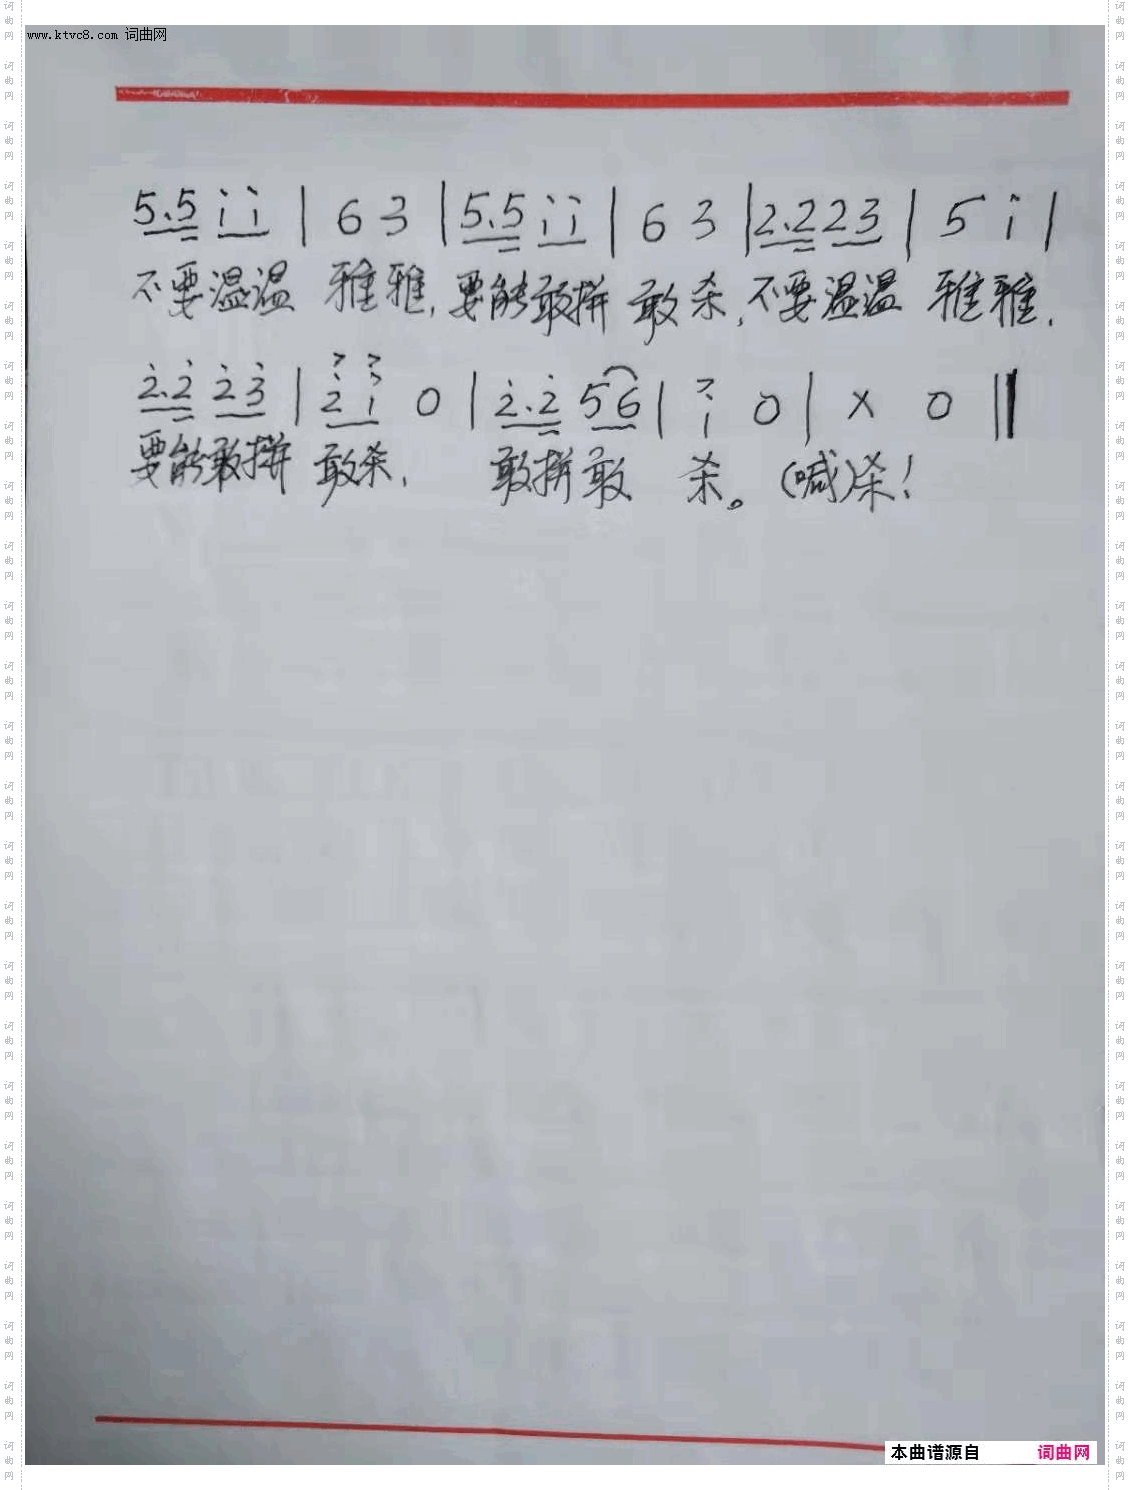 www.ktvc8.com 词曲网
5.5 i̇ i̇ | 6 3 | 5.5 i̇ i̇ | 6 3 | 2.2 2 3 | 5 i̇ |
不要温温 雅雅,要能敢拼 敢杀,不要温温 雅雅.
2̇.2̇ 2̇ 3̇ | 2̇ 1̇ 0 | 2̇.2̇ 5 6 | 1̇ 0 | x 0 ‖
要能敢拼 敢杀, 敢拼敢 杀。(喊)杀!
本曲谱源自 词曲网